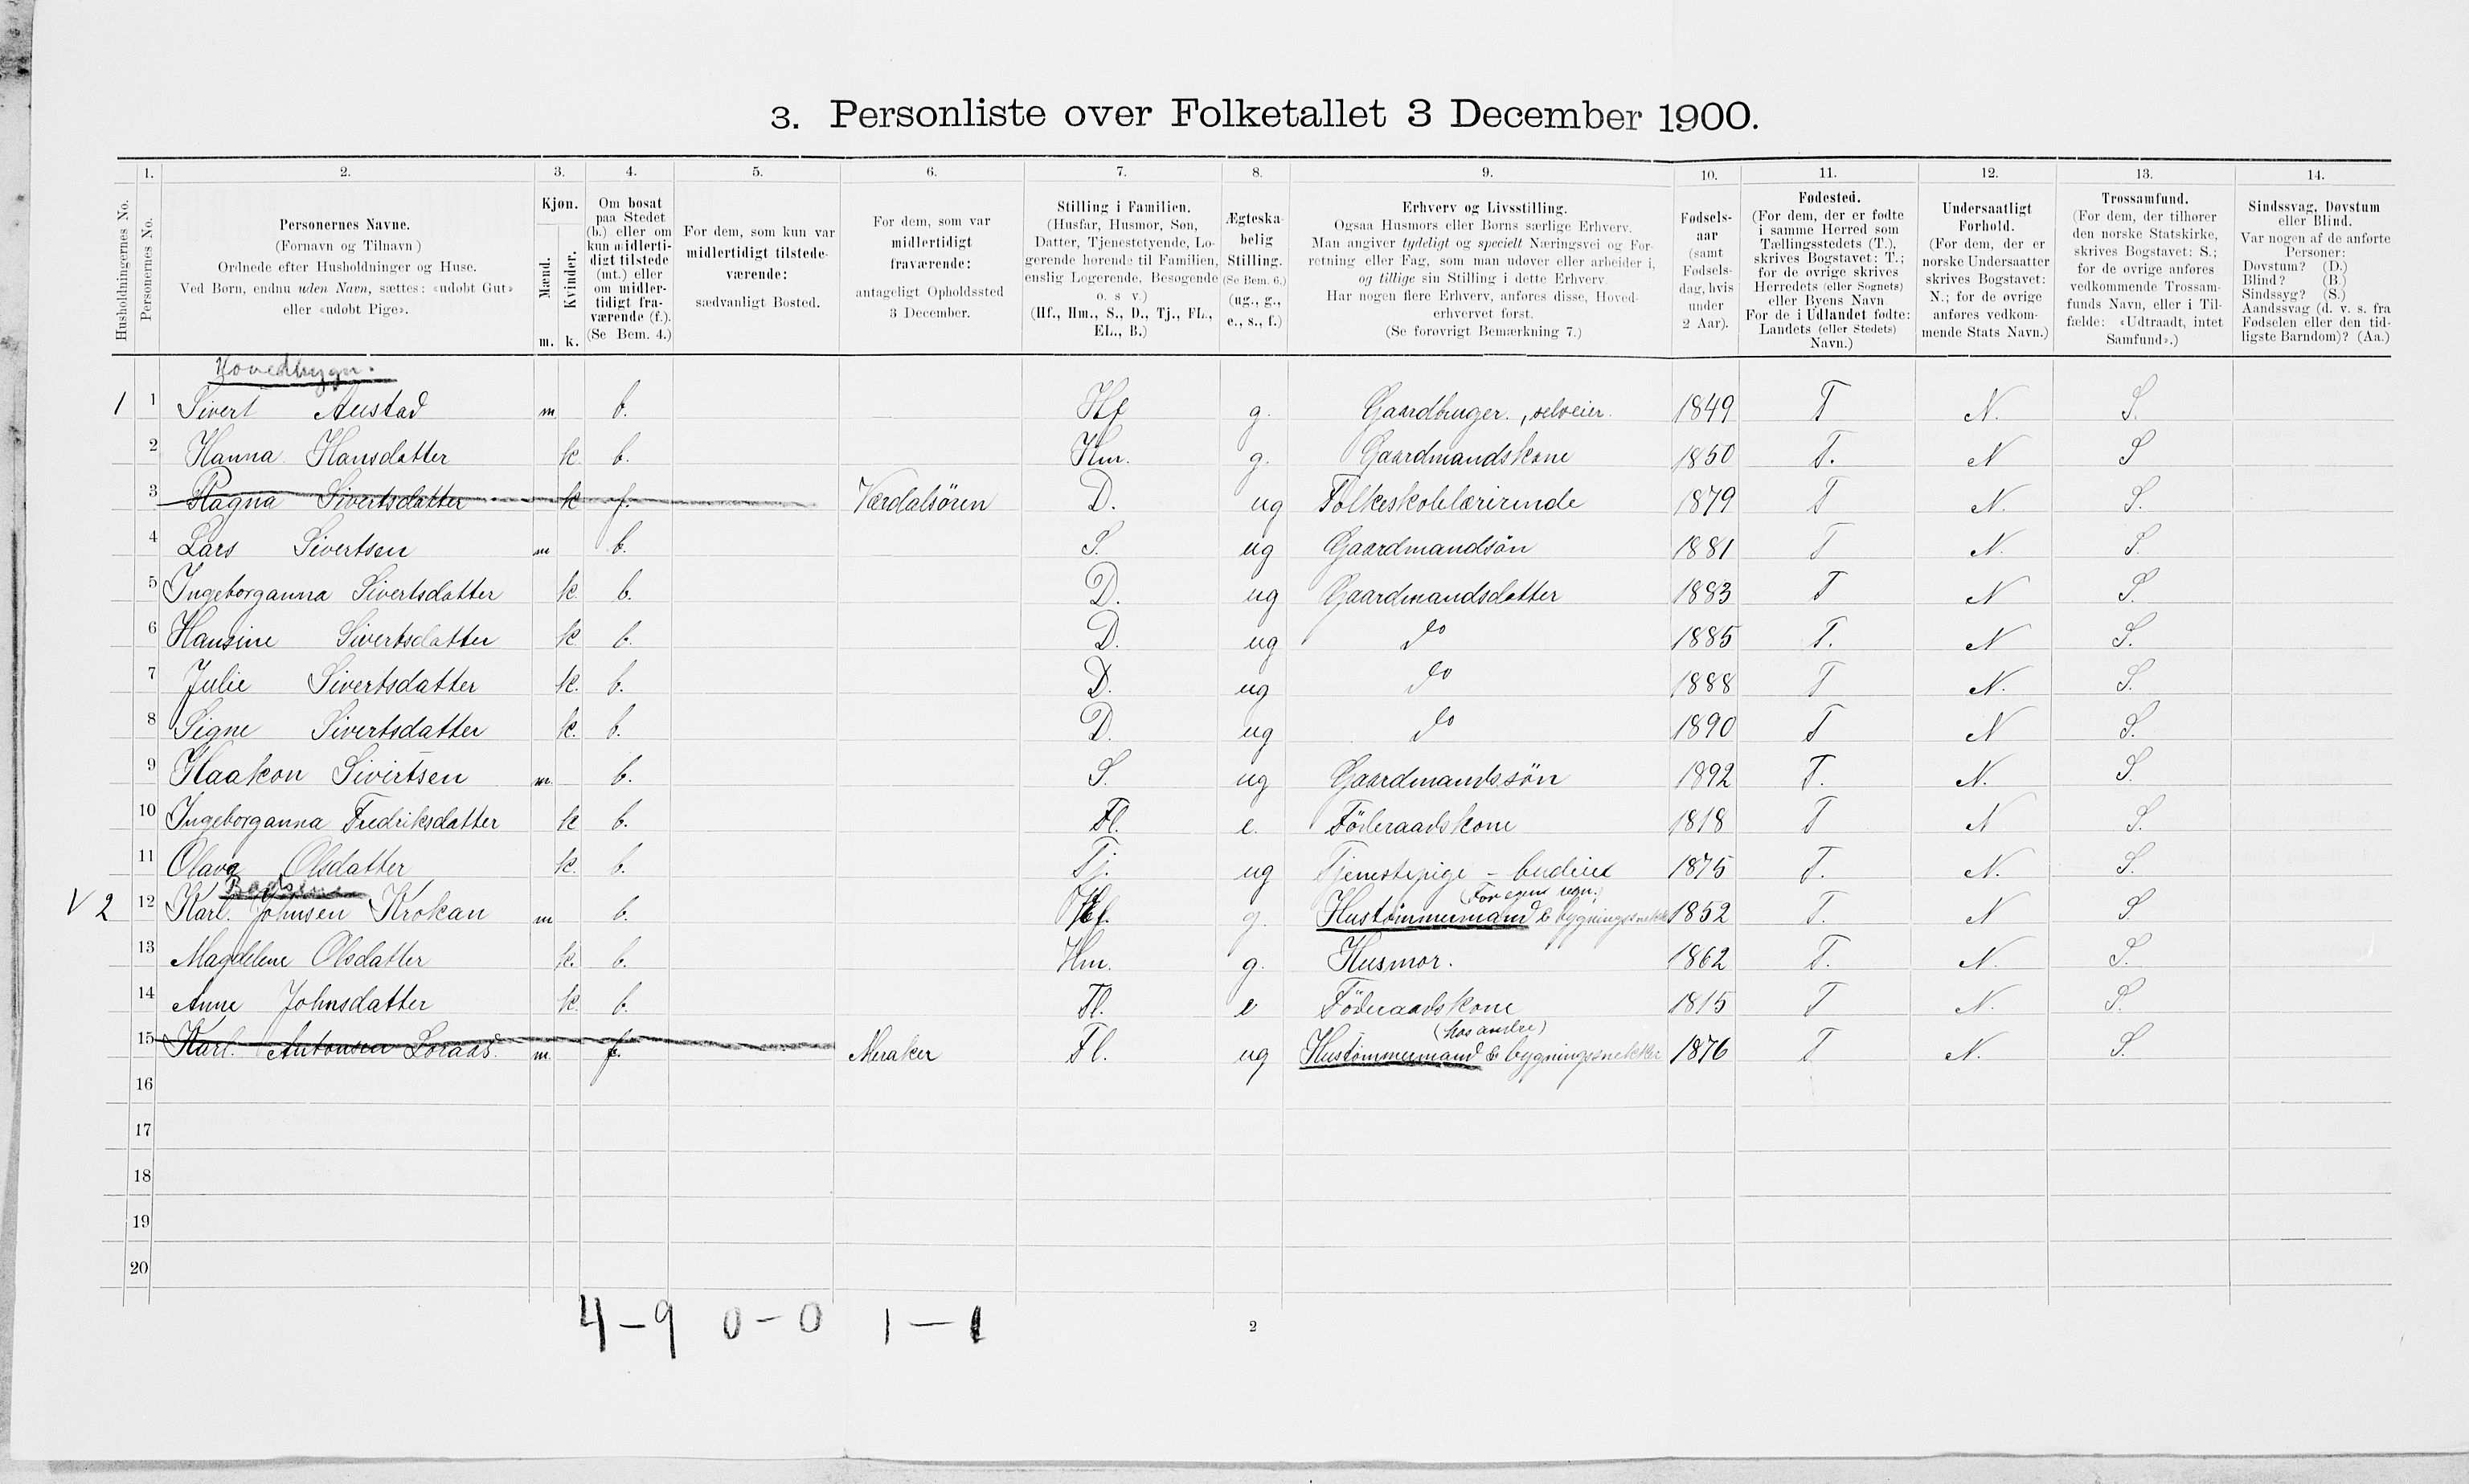 3. Personliste over Folketallet 3 December 1900.
1. 2. 3. 4. 5. 6. 7. 8. 9. 10. 11. 12. 13. 14.
Husholdningernes No.
Personernes No.
Personernes Navne.
(Fornavn og Tilnavn)
Ordnede efter Husholdninger og Huse.
Ved Børn, endnu uden Navn, sættes: «udøbt Gut»
eller «udøbt Pige».
Kjøn.
Mænd.
Kvinder.
m. k.
Om bosat
paa Stedet
(b.) eller om
kun midlerti-
digt tilstede
(mt.) eller
om midler-
tidigt fra-
værende (f.).
(Se Bem. 4.)
For dem, som kun var
midlertidigt tilstede-
værende:
sædvanligt Bosted.
For dem, som var
midlertidigt
fraværende:
antageligt Opholdssted
3 December.
Stilling i Familien.
(Husfar, Husmor, Søn,
Datter, Tjenestetyende, Lo-
gerende hørende til Familien,
enslig Logerende, Besøgende
o. s v.)
(Hf., Hm., S., D., Tj., FL.,
EL., B.)
Ægteska-
belig
Stilling.
(Se Bem. 6.)
(ug., g.,
e., s., f.)
Erhverv og Livsstilling.
Ogsaa Husmors eller Børns særlige Erhverv.
Man angiver tydeligt og specielt Næringsvei og For-
retning eller Fag, som man udøver eller arbeider i,
og tillige sin Stilling i dette Erhverv
Har nogen flere Erhverv, anføres disse, Hoved-
erhvervet først.
(Se forøvrigt Bemærkning 7.)
Fødsels-
aar
(samt
Fødsels-
dag, hvis
under
2 Aar).
Fødested.
(For dem, der er fødte
i samme Herred som
Tællingsstedets (T.),
skrives Bogstavet: T.;
for de øvrige skrives
Herredets (eller Sognets)
eller Byens Navn
For de i Udlandet fødte:
Landets (eller Stedets)
Navn.)
Undersaatligt
Forhold.
(For dem, der er
norske Undersaatter
skrives Bogstavet:
N.; for de øvrige
anføres vedkom-
mende Stats Navn.)
Trossamfund.
(For dem, der tilhører
den norske Statskirke,
skrives Bogstavet: S.;
for de øvrige anføres
vedkommende Trossam-
funds Navn, eller i Til-
fælde: «Udtraadt, intet
Samfund».)
Sindssvag, Døvstum
eller Blind.
Var nogen af de anførte
Personer:
Døvstum? (D.)
Blind? (B.)
Sindssyg? (S.)
Aandssvag (d. v. s. fra
Fødselen eller den tid-
ligste Barndom)? (Aa.)
Hovedbygn.
1 1 Sivert Austad m b. Hf g. Gaardbruger., selveier. 1849 T N. S.
2 Hanna Hansdatter k. b. Hm. g. Gaardmandskone 1850 T. N S
3 Ragna Sivertsdatter k f. Værdalsören D. ug Folkeskolelærerinde 1879 T N. S.
4 Lars Sivertsen m b. S. ug Gaardmandsön 1881 T N. S.
5 Ingeborganna Sivertsdatter k. b. D. ug Gaardmandsdatter 1883 T N S.
6 Hansine Sivertsdatter k. b. D. ug do 1885 T. N S.
7 Julie Sivertsdatter k. b. D. ug do 1888 T N. S.
8 Signe Sivertsdatter k. b. D. ug do 1890 T N S.
9 Haakon Sivertsen m. b. S. ug Gaardmandssön 1892 T. N. S.
10 Ingeborganna Fredriksdatter k b. Fl. e. Föderaadskone 1818 T N S.
11 Olava Olsdatter k. b. Tj. ug Tjenestepige - budeie 1875 T. N. S.
(For egen regn.)
V 2 12 Karl. Johnsen Krokan m b. Hf. g. Hustömmermand & bygningssnekker 1852 T. N S
13 Magdelene Olsdatter k. b. Hm. g. Husmor. 1862 T. N. S.
14 Anne Johnsdatter k. b. Fl. e Föderaadskone 1815 T N. S.
(hos andre)
15 Karl. Antonsen Loraas. m f. Meraker Fl. ug Hustömmermand & bygningssnekker 1876 T N. S.
16
17
18
19
20
4-9 0-0 1-1
2